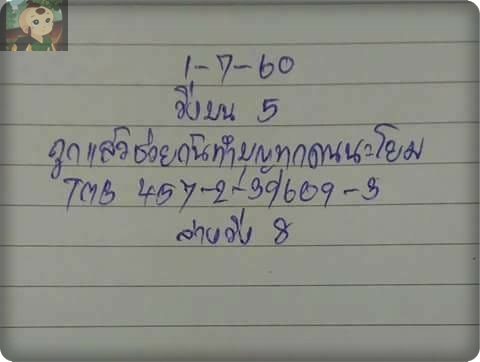 1-7-60
วิ่งบน 5
ถูกแล้วช่วยกันทำบุญทุกคนนะโยม
TMB 457-2-39609-3
ล่างวิ่ง 8